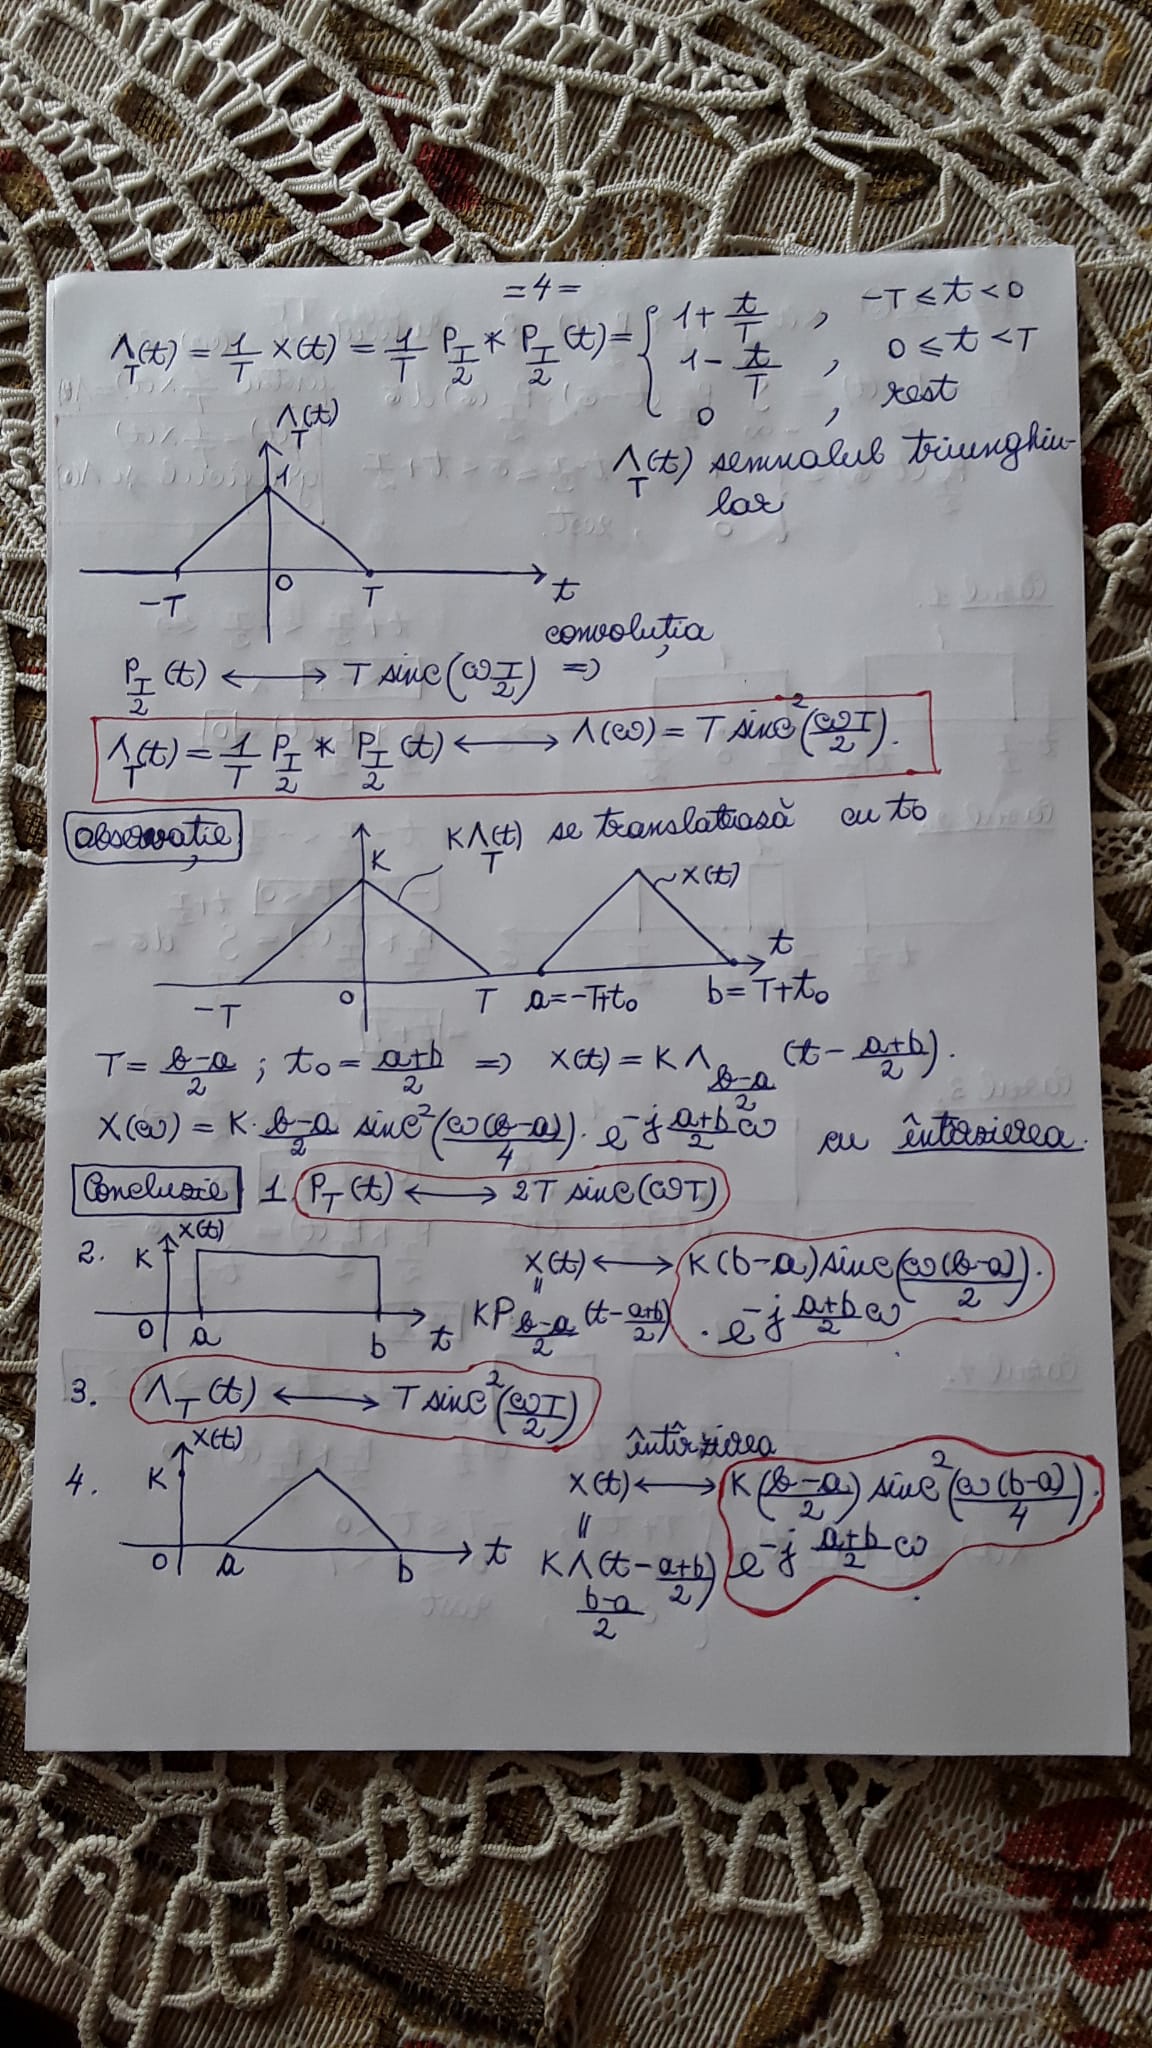 =4=
Λ_T(t) = 1/T x(t) = 1/T p_{T/2} * p_{T/2}(t) = { 1+t/T , -T ≤ t < 0
1 - t/T , 0 ≤ t < T
0 , rest
Λ_T(t)
1
-T 0 T t
Λ_T(t) semnalul triunghiu-
lar
convoluția
p_{T/2}(t) ⟷ T sinc(ω T/2) ⇒
Λ_T(t) = 1/T p_{T/2} * p_{T/2}(t) ⟷ Λ(ω) = T sinc²(ωT/2).
observație
K
KΛ_T(t) se translatează cu t₀
x(t)
t
-T 0 T a=-T+t₀ b=T+t₀
T = (b-a)/2 ; t₀ = (a+b)/2 ⇒ x(t) = KΛ_{(b-a)/2}(t - (a+b)/2).
X(ω) = K · (b-a)/2 sinc²(ω(b-a)/4) · e^{-j (a+b)/2 ω} cu întârzierea.
Concluzie 1. p_T(t) ⟷ 2T sinc(ωT)
2. K x(t)
0 a b t
x(t) ⟷ K(b-a) sinc(ω(b-a)/2) ·
"
K p_{(b-a)/2}(t - (a+b)/2) · e^{-j (a+b)/2 ω}
3. Λ_T(t) ⟷ T sinc²(ωT/2)
4. K x(t)
0 a b t
întîrzierea
x(t) ⟷ K((b-a)/2) sinc²(ω(b-a)/4) ·
"
KΛ_{(b-a)/2}(t - (a+b)/2) e^{-j (a+b)/2 ω}